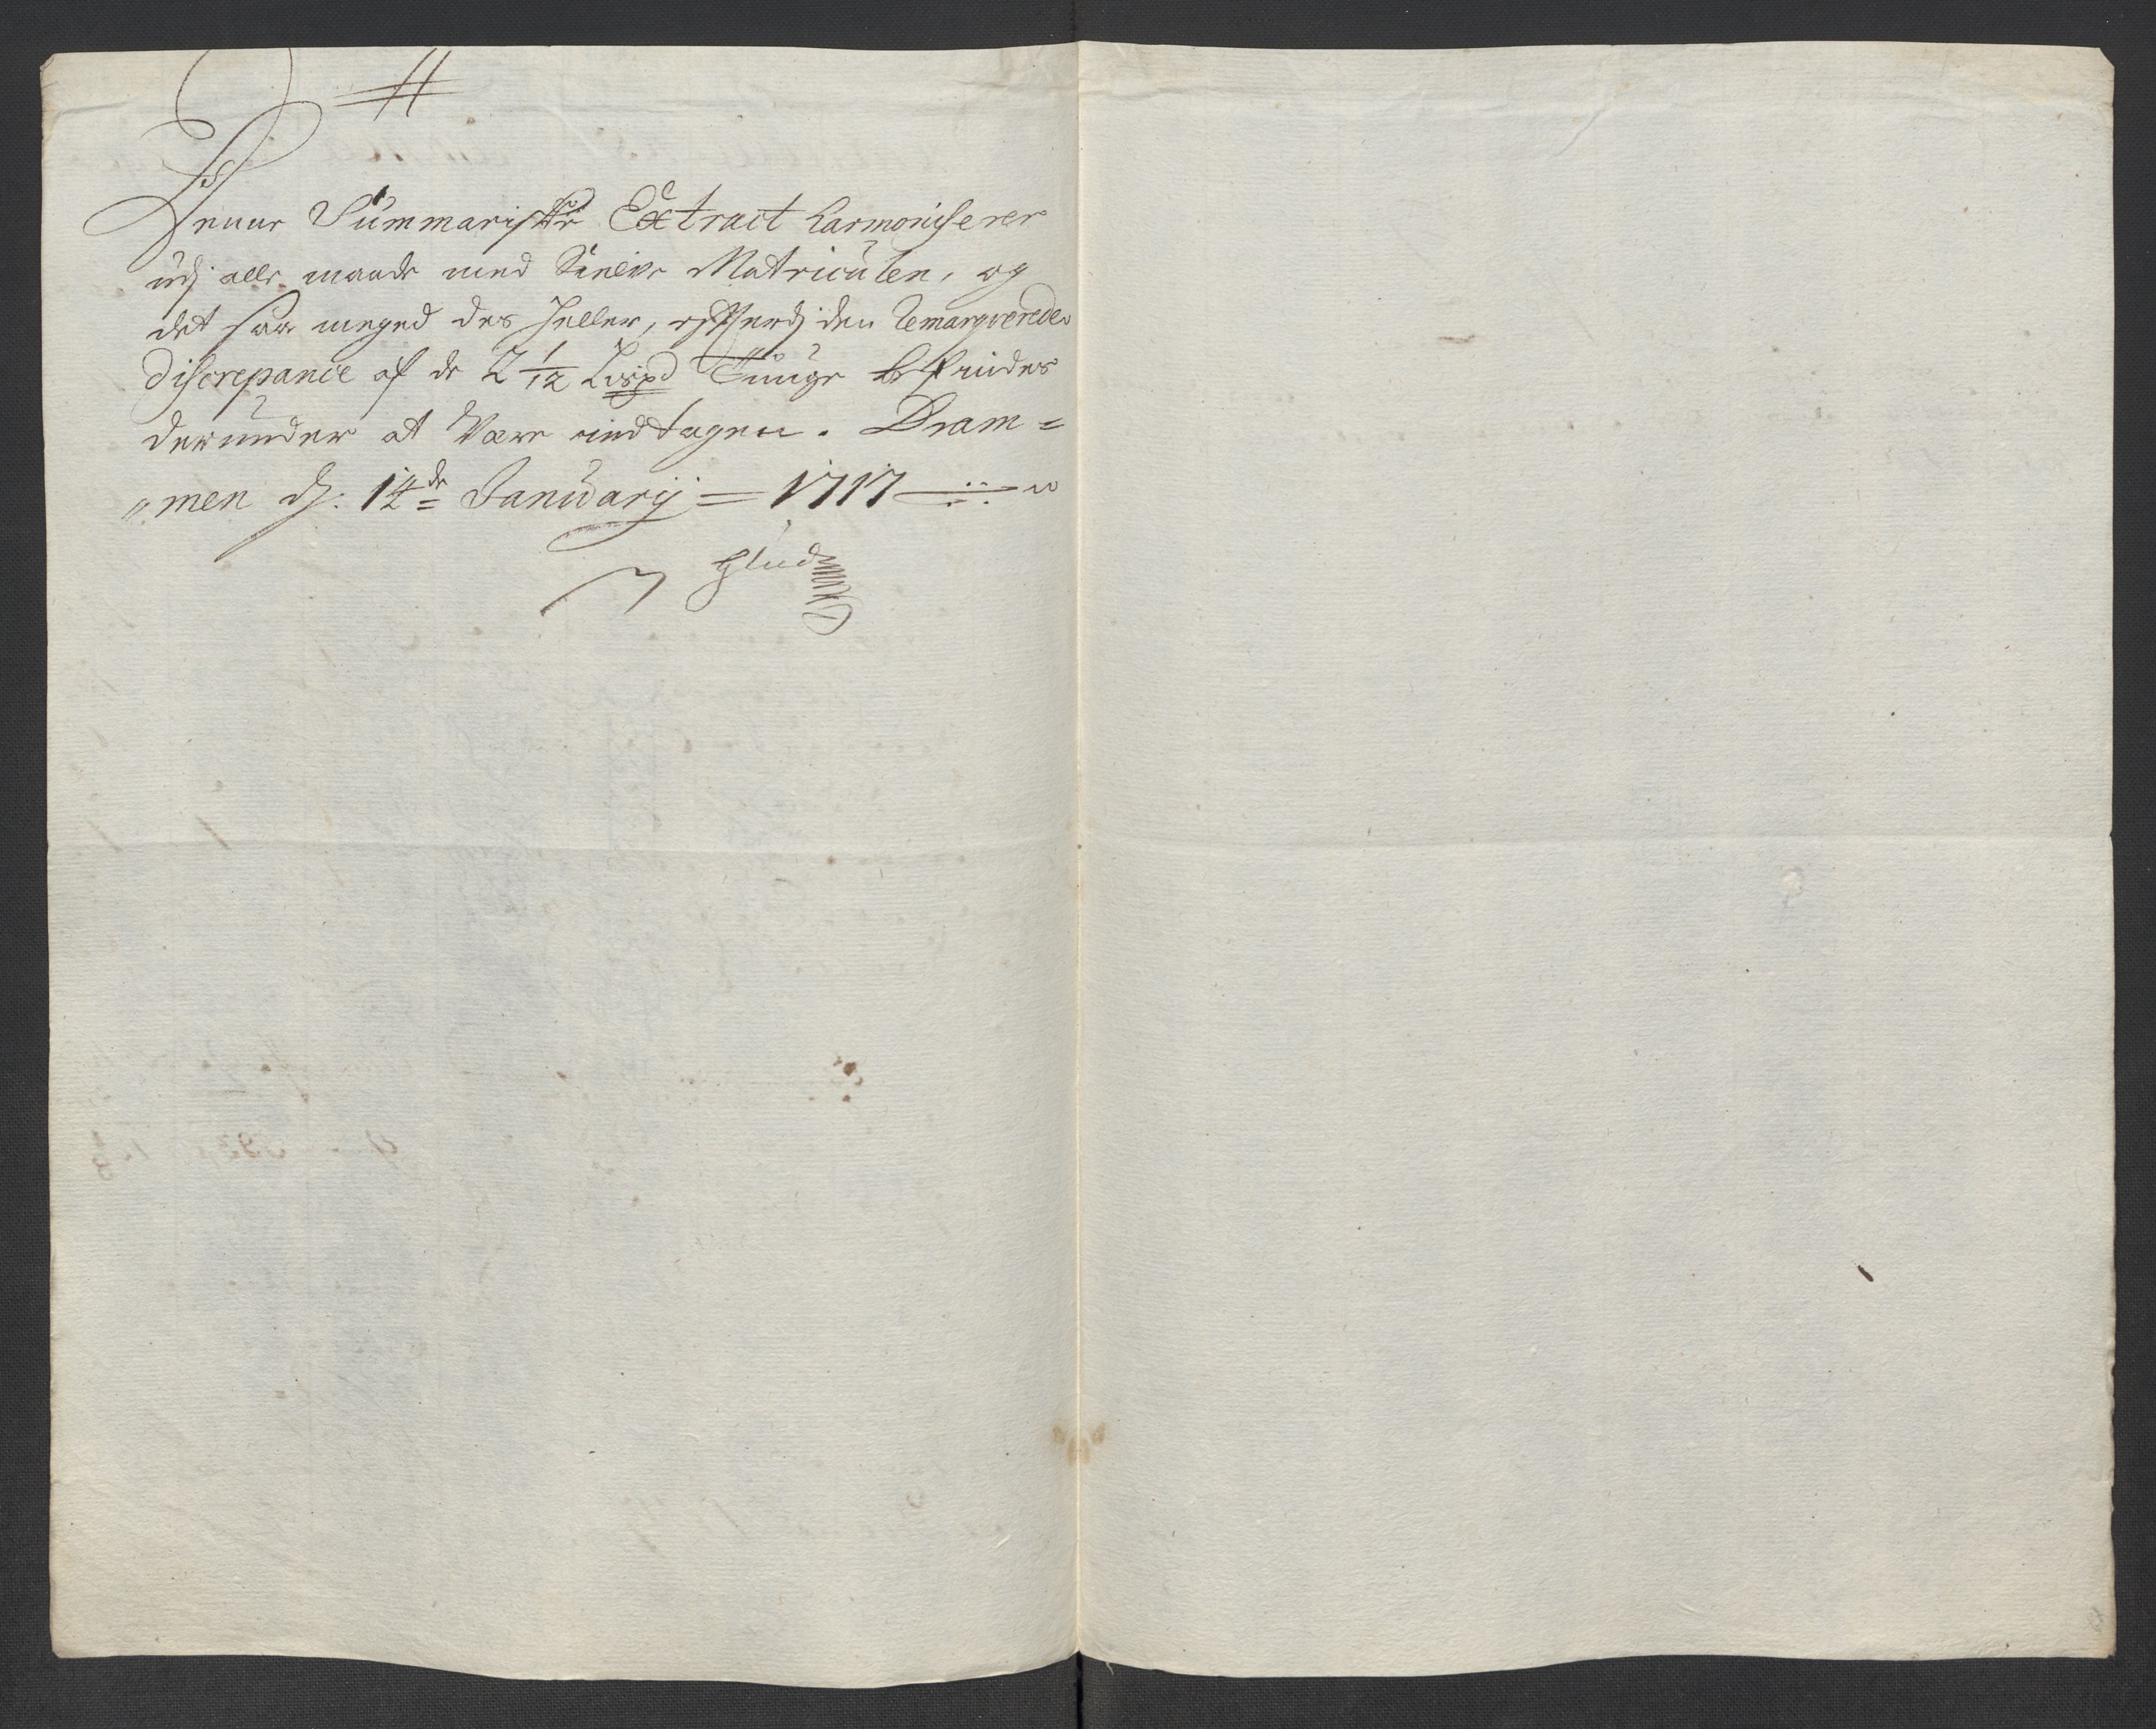 Denne Summariske Extract harmoniserer
udj alle maade med Sielve Matriculen, og
det saa meget des heller, efterdj den Remarqverede
Discrepance af de 2 1/12 Lispd Tunge befindes
derunder at Være indtagen. Dram=
"men d: 14de Januarij = 1717
Glud